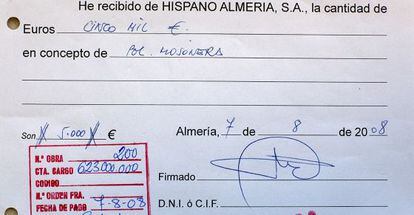 He recibido de HISPANO ALMERIA, S.A., la cantidad de
Euros CINCO MIL €.
en concepto de POL. MOJONERA
Son # 5.000 # € Almería, 7 de 8 de 2008
N.º OBRA 200
CTA. CARGO 623000.000
CODIGO
N.º ORDEN FRA.
FECHA DE PAGO 7-8-08
Firmado
D.N.I. ó C.I.F.